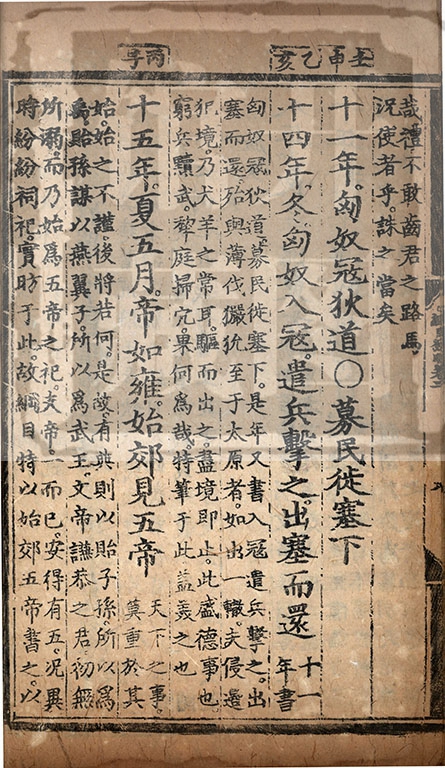 壬申乙亥
丙子
哉禮不敢齒君之路馬
況使者乎誅之當矣
十一年。匈奴寇狄道〇募民徙塞下
十四年。冬匈奴入寇。遣兵擊之。出塞而還 十一年書
匈奴寇狄道。募民徙塞下。是年又書入寇遣兵擊之。出
塞而還。殆與薄伐玁狁至于太原者。如出一轍。夫侵邊
犯境。乃犬羊之常耳。驅而出之。盡境即止。此盛德事也
窮兵黷武。犂庭掃穴。果何爲哉。特筆于此。蓋美之也
十五年。夏五月。帝如雍。始郊見五帝 天下之事。莫重於其
始。始之不謹。後將若何。是故有典則以貽子孫。所以爲
禹。貽孫謀以燕翼子。所以爲武王。文帝謙恭之君。初無
所溺。而乃始爲五帝之祀。夫帝。一而已。安得有五。况異
時紛紛祠祀。實昉于此。故綱目特以始郊五帝書之。以